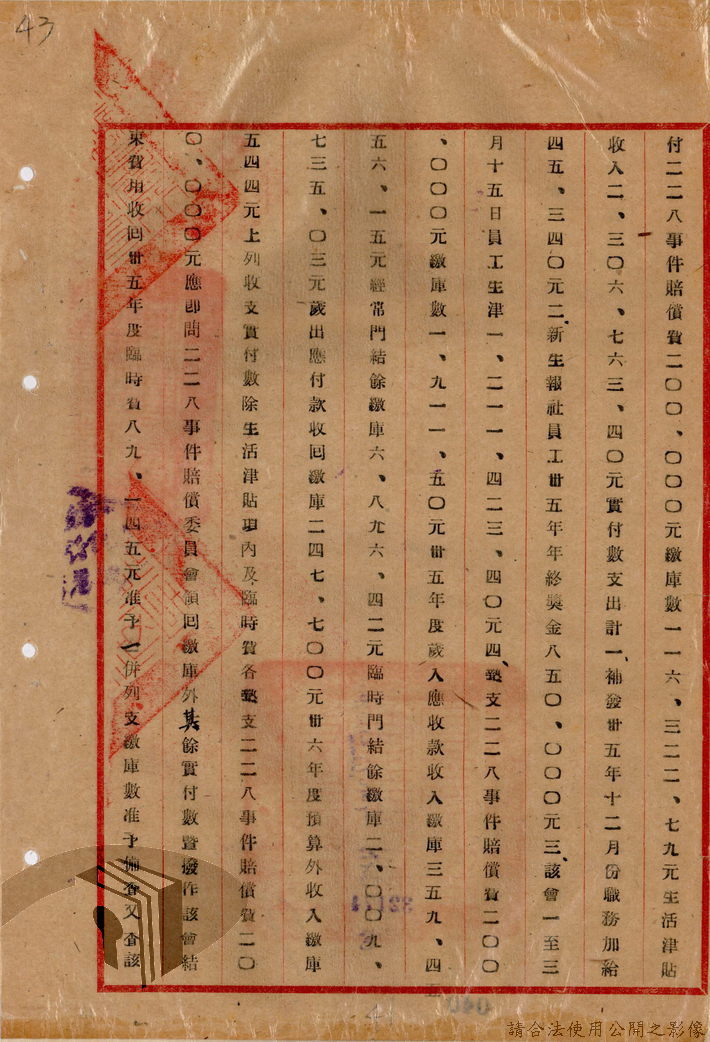 43
付二二八事件賠償費二〇〇、〇〇〇元繳庫數一一六、三二二、七九元生活津貼
收入二、三〇六、七六三、四〇元實付數支出計一、補發卅五年十二月份職務加給
四五、三四〇元二、新生報社員工卅五年年終獎金八五〇、〇〇〇元三、該會一至三
月十五日員工生津一、二一一、四二三、四〇元四、墊支二二八事件賠償費二〇〇
、〇〇〇元繳庫數一、九一一、五〇元卅五年度歲入應收款收入繳庫三五九、四
五六、一五元經常門結餘繳庫六、八九六、四二元臨時門結餘繳庫二、〇〇九、
七三五、〇三元歲出應付款收回繳庫二四七、七〇〇元卅六年度預算外收入繳庫
五四四元上列收支實付數除生活津貼項內及臨時費各墊支二二八事件賠償費二〇
〇、〇〇〇元應卽問二二八事件賠償委員會領回繳庫外其餘實付數暨撥作該會結
束費用收回卅五年度臨時費八九、一四五元准予一併列支繳庫數准予備查又查該
040
請合法使用公開之影像